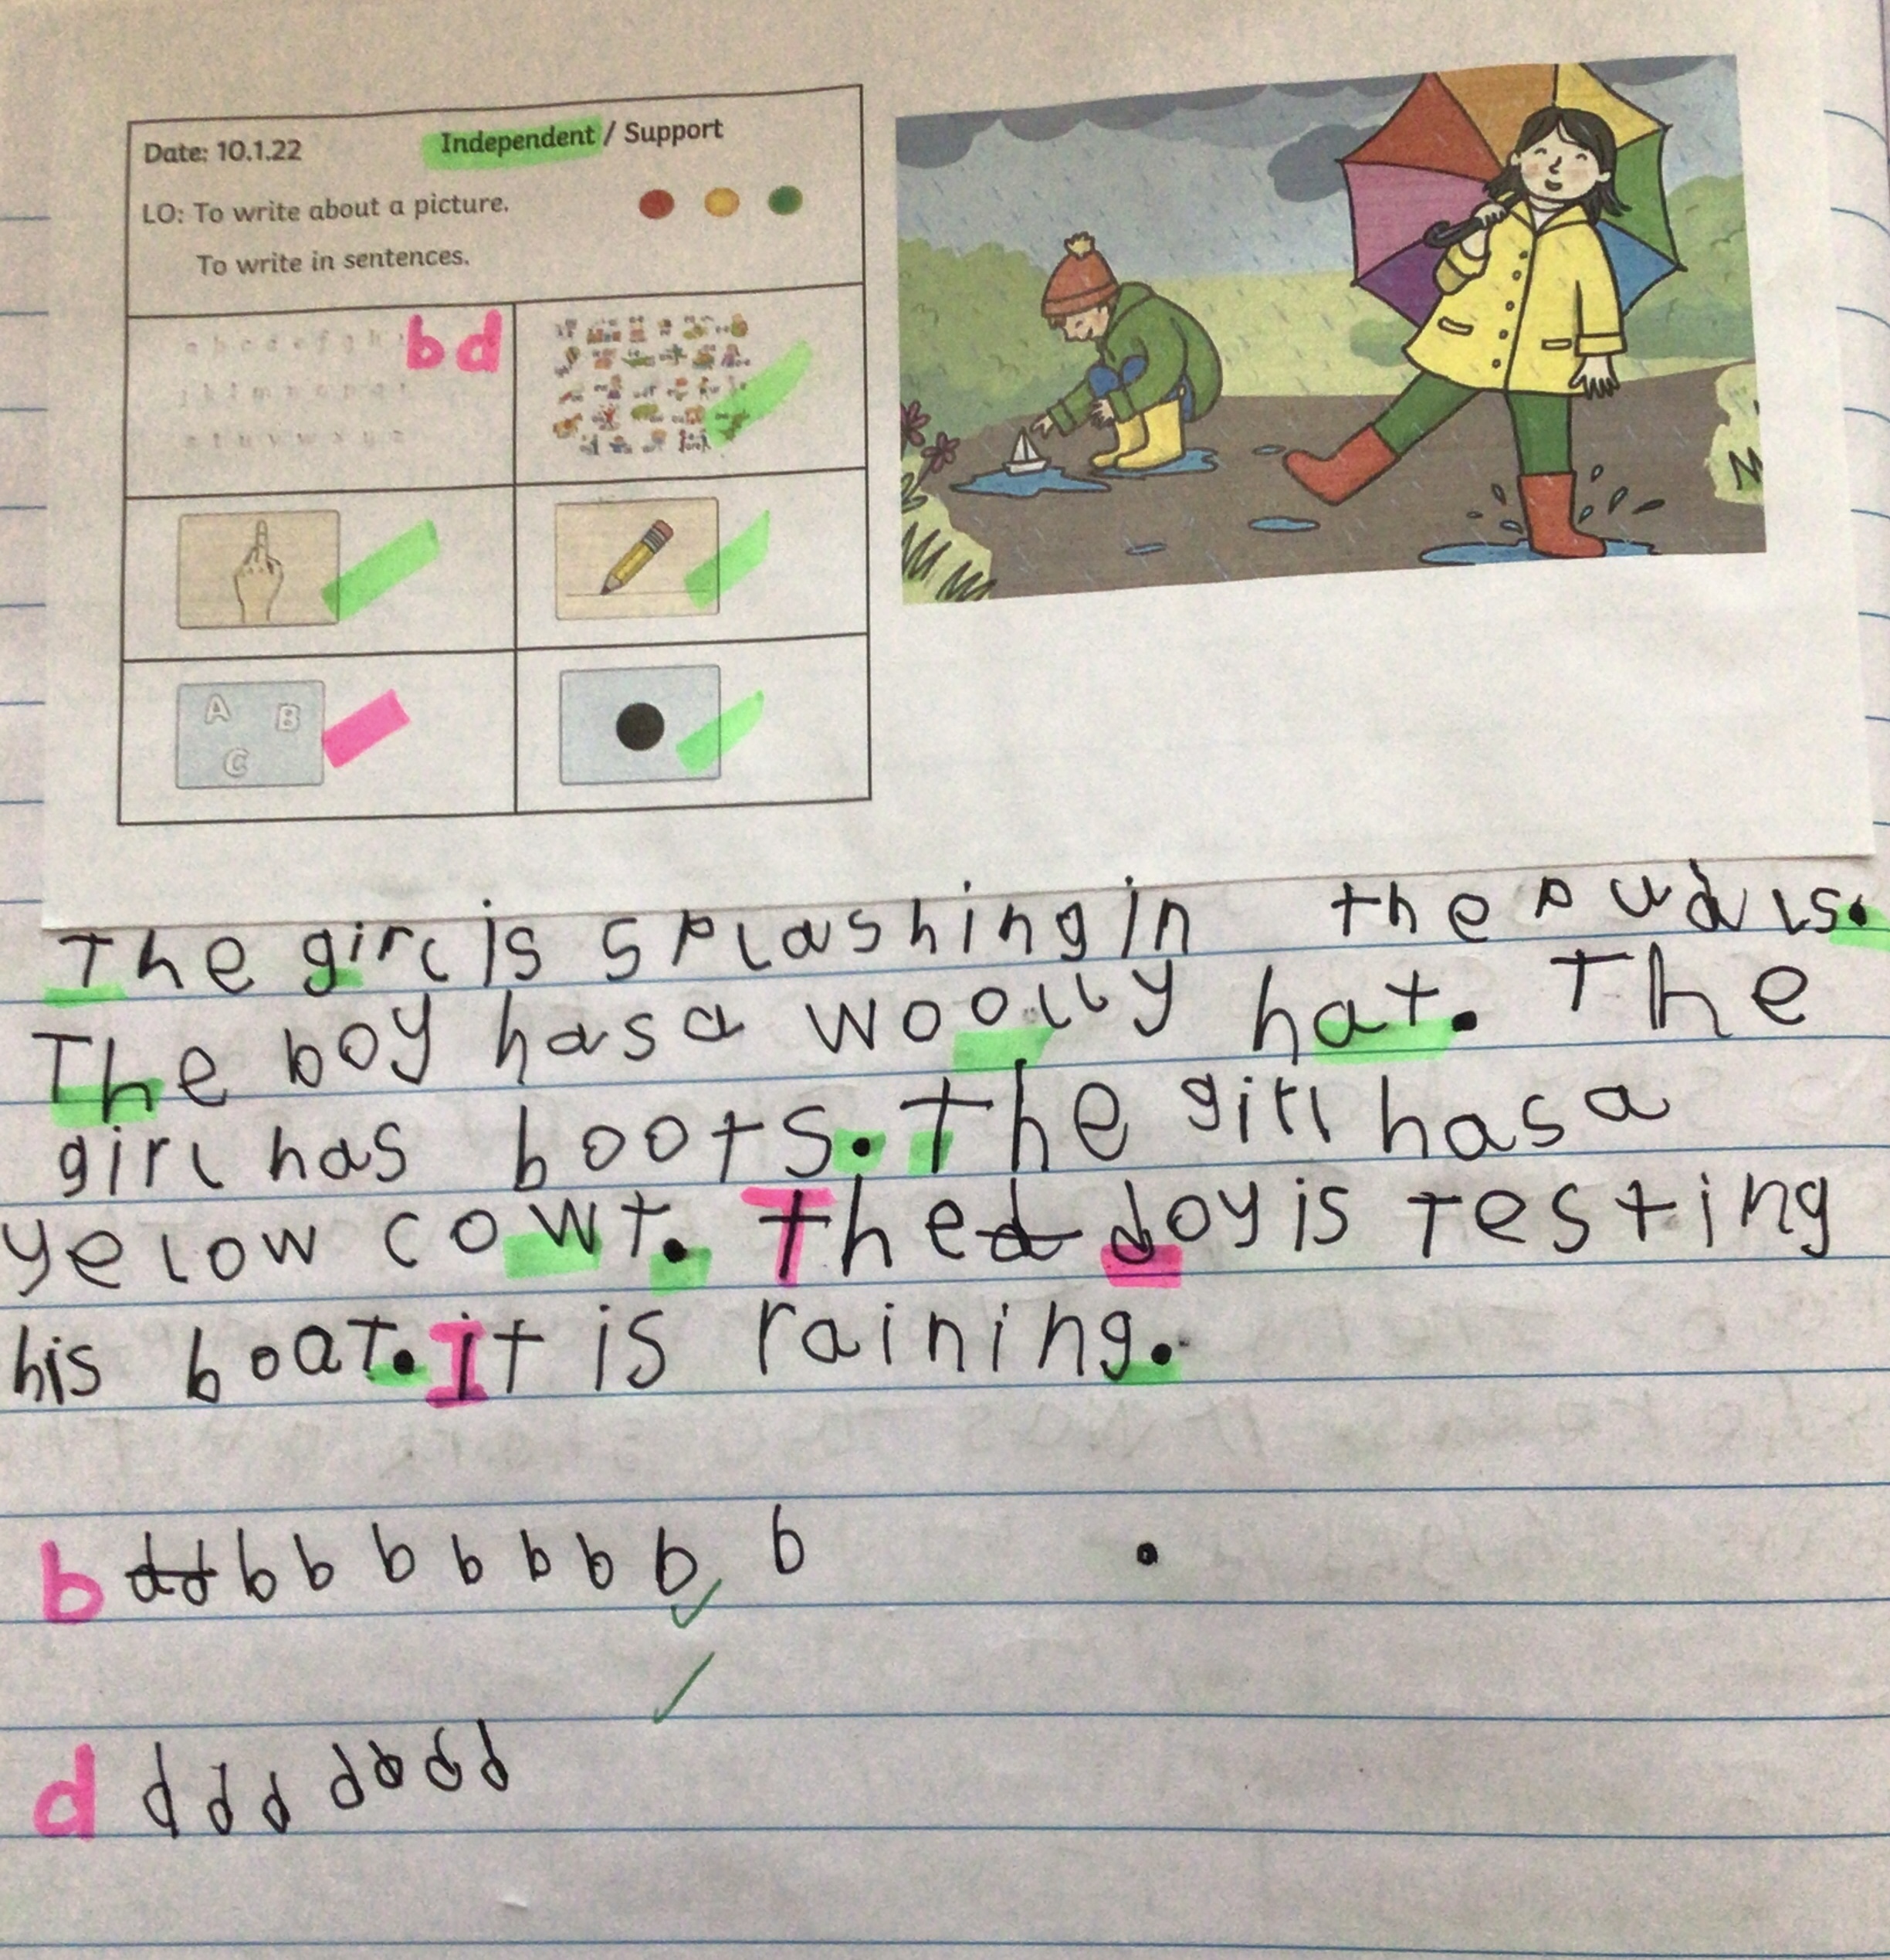 Date: 10.1.22 Independent / Support
LO: To write about a picture.
To write in sentences.
a b c d e f g h i
j k l m n o p q r
s t u v w x y z
b d
A B
C
The girl is splashing in the pudls.
The boy has a woolly hat. The
girl has boots. The girl has a
yelow cowt. The d doy is testing
his boat. it is raining.
b d d b b b b b b b b .
d d d d d d d d